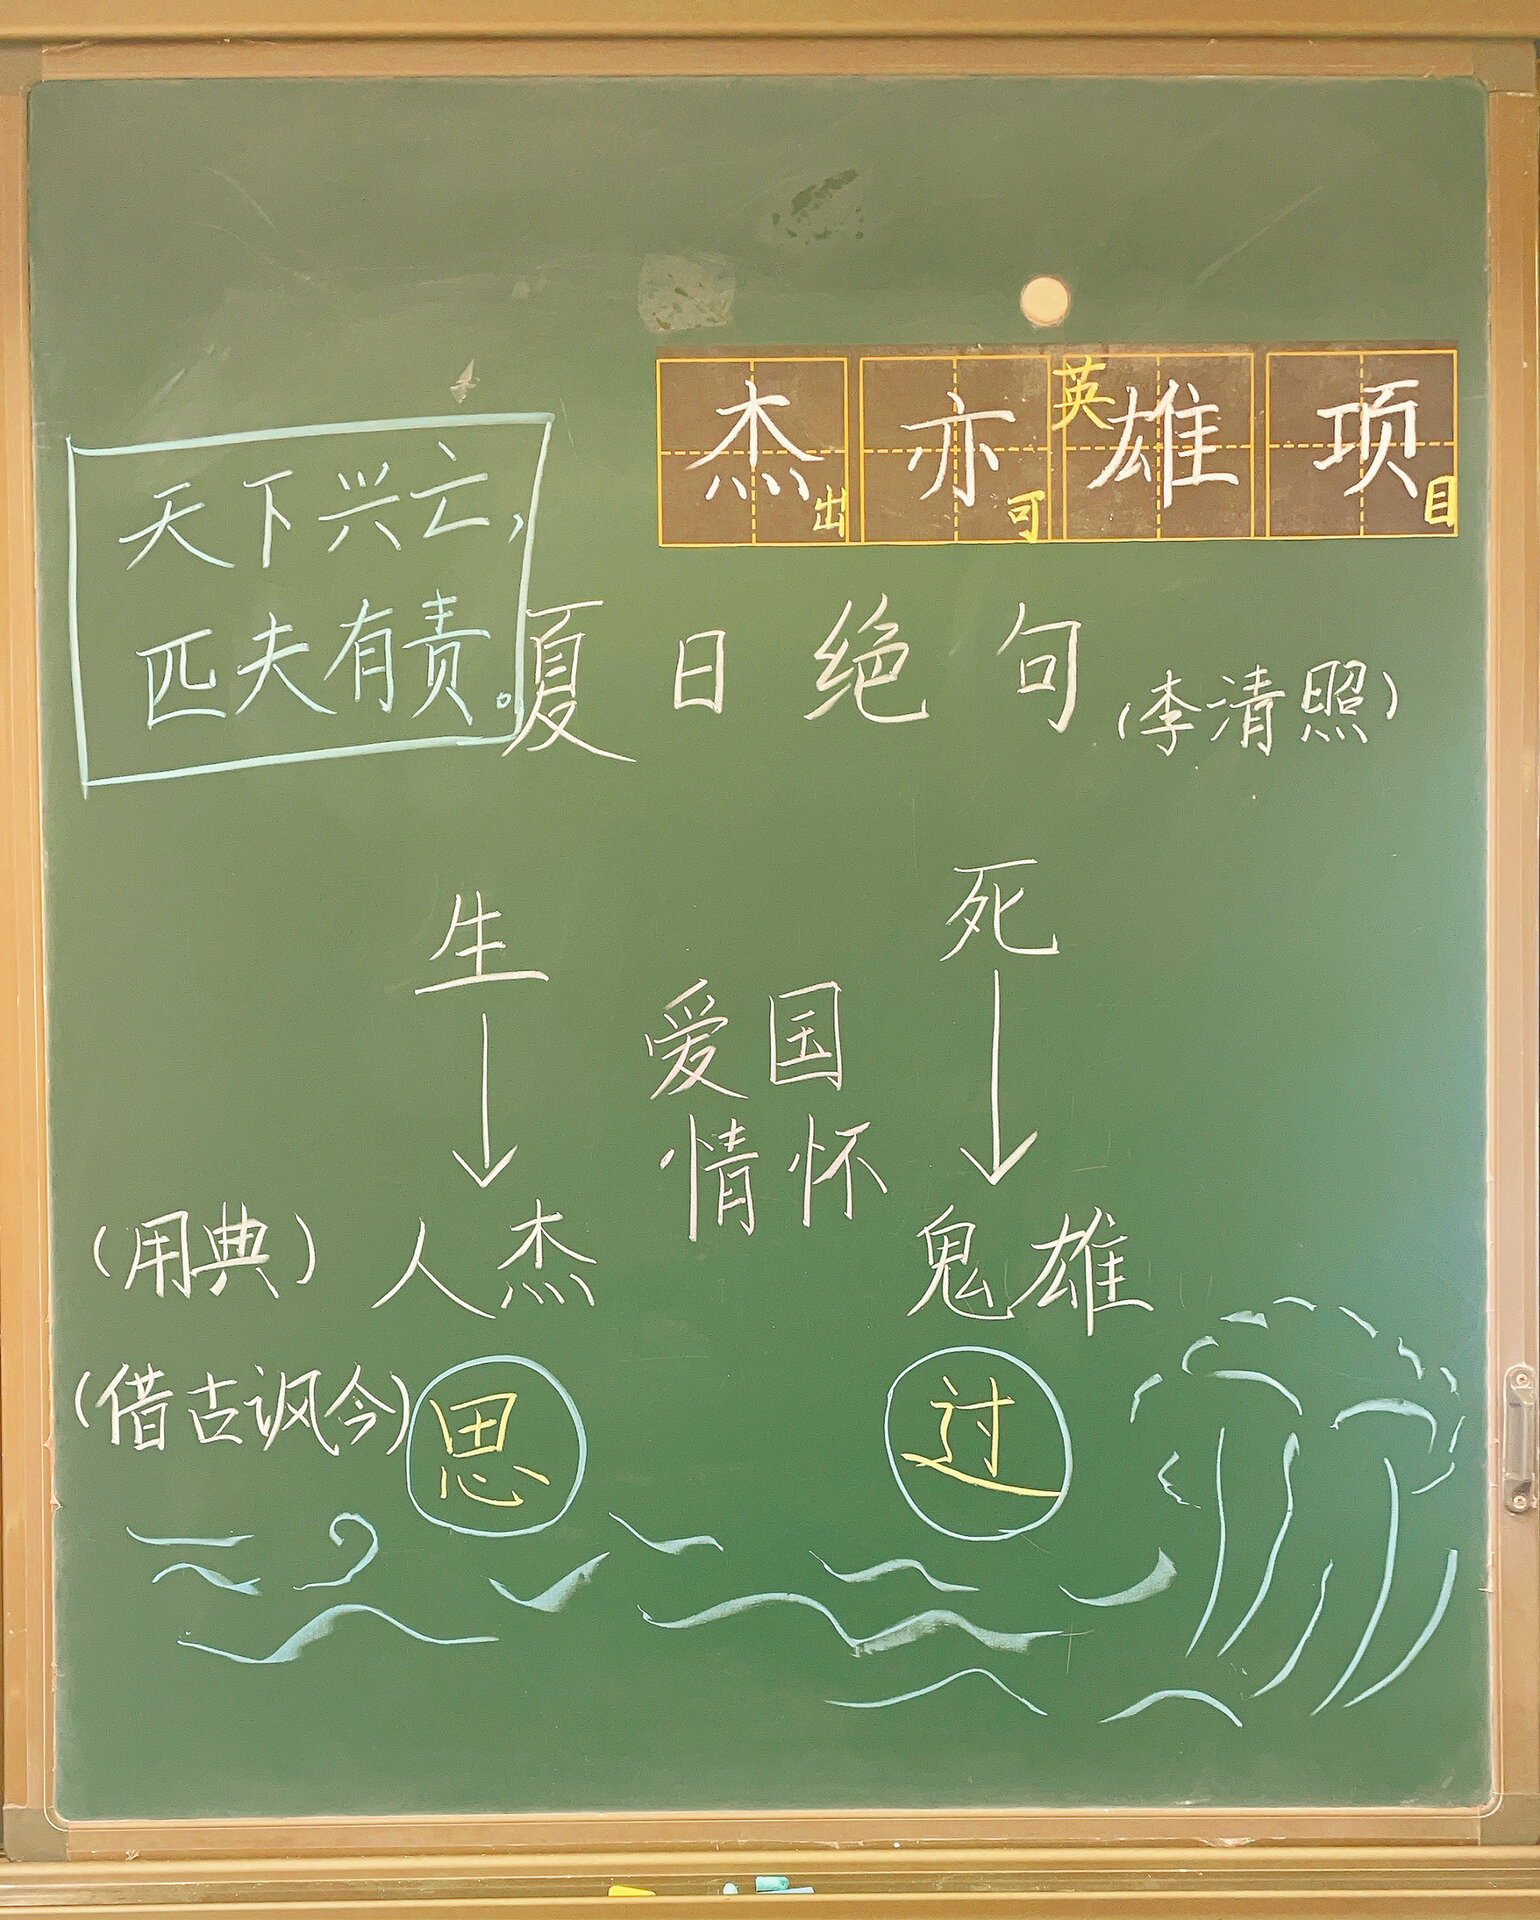 杰出 亦可 英雄 项目
天下兴亡,
匹夫有责。
夏日绝句(李清照)
生 死
爱国
情怀
(用典) 人杰 鬼雄
(借古讽今) 思 过